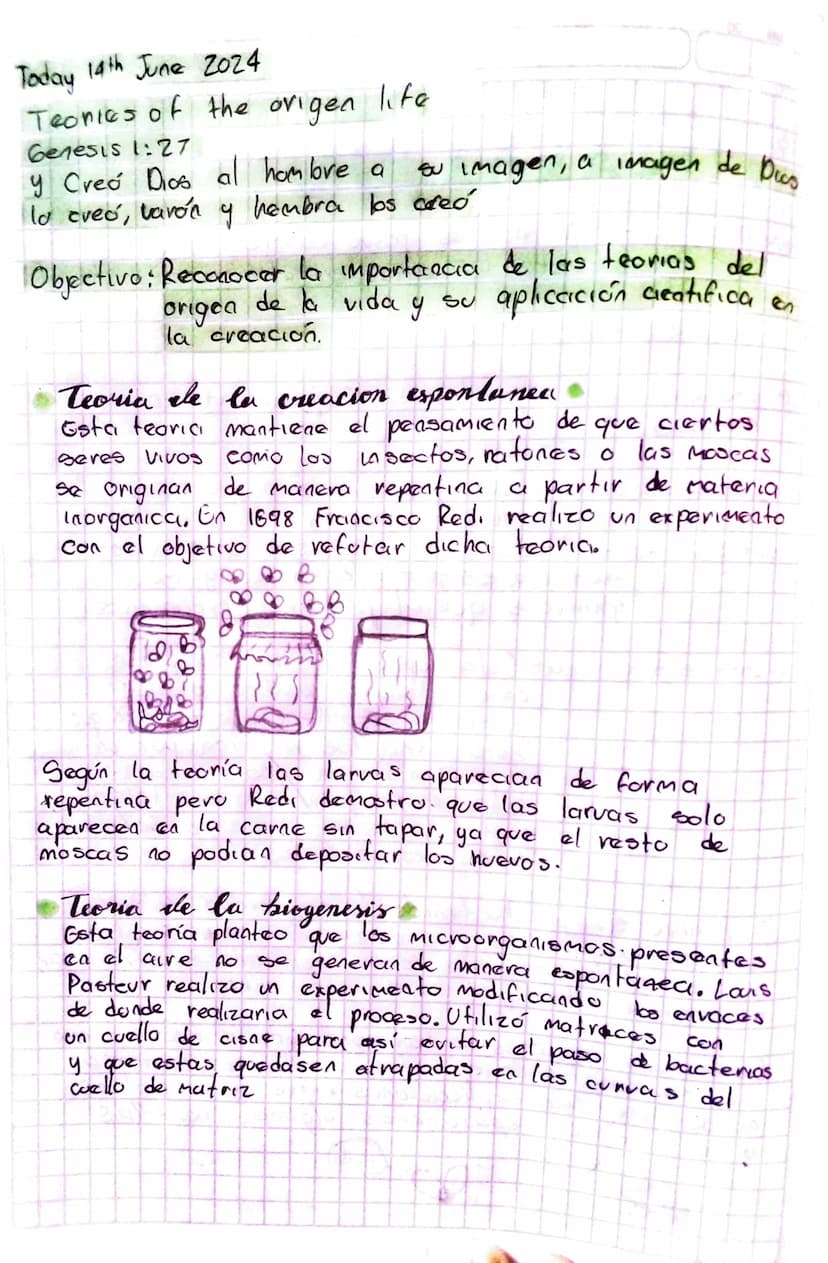 Today 14th June 2024
Teories of the origen life
Genesis 1:27
y Creó Dios al hombre a su imagen, a imagen de Dios
lo creó, varón y hembra los creó
Objectivo: Reconocer la importancia de las teorias del
origen de la vida y su aplicación cientifica en
la creación.
Teoria de la creacion espontanea
Esta teoria mantiene el pensamiento de que ciertos
seres vivos como los insectos, ratones o las moscas
se originan de manera repentina a partir de materia
inorganica. En 1698 Francisco Redi realizo un experimento
con el objetivo de refutar dicha teoria.
Según la teoría las larvas aparecian de forma
repentina pero Redi demostro que las larvas solo
aparecen en la carne sin tapar, ya que el resto de
moscas no podian depositar los huevos.
Teoria de la biogenesis
Esta teoría planteo que los microorganismos presentes
en el aire no se generan de manera espontanea. Lois
Pasteur realizo un experimento modificando los envaces
de donde realizaria el proceso. Utilizó matraces con
un cuello de cisne para así evitar el paso de bacterias
y que estas quedasen atrapadas en las curvas del
cuello de matriz